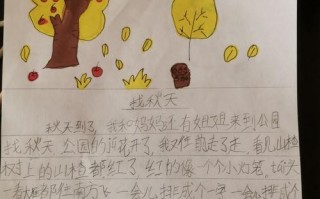 找秋天
秋天到了,我和妈妈还有姐姐来到公园
找秋天 公园的菊花开了,我又往前走了走,看见山楂
树上的山楂都红了,红的像一个个小灯笼,抬头
一看大雁都往南方飞,一会儿排成个一字一会儿排成个